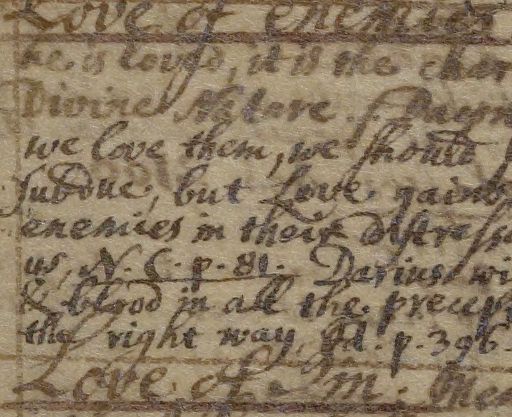 Love of enemies
he is loved, it is the char
Divine Nature.
we love them, we should
subdue, but Love gains
enemies in their distress
us, N. C. p. 81. Darius wi
& blood in all the
the right way, Id. p. 396.
Love of